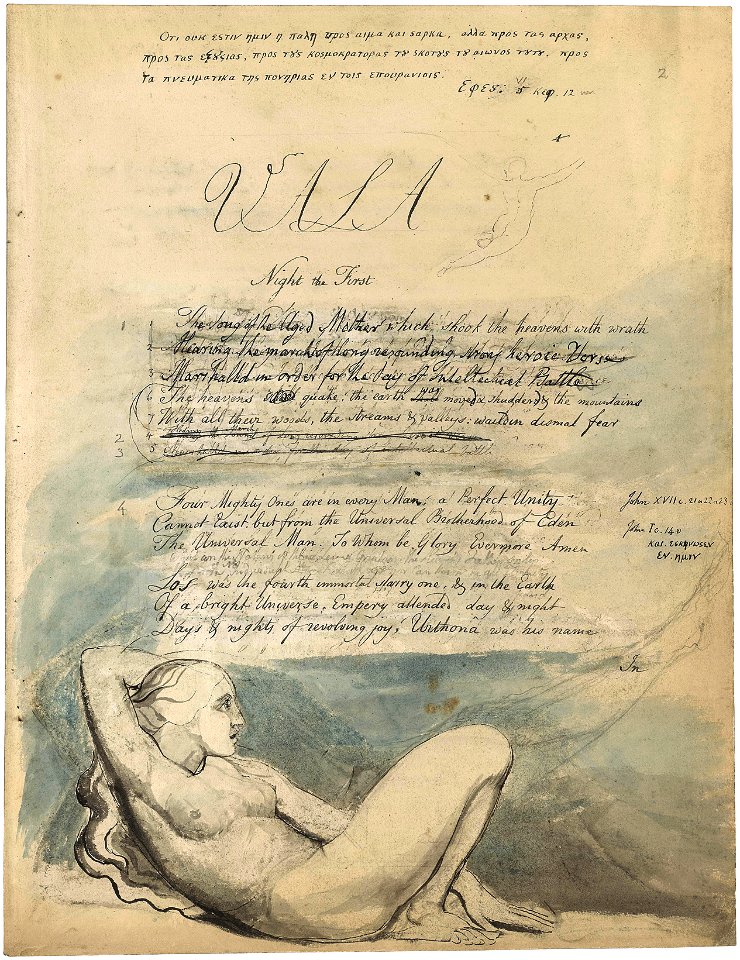 Οτι ουκ εστιν ημιν η παλη προς αιμα και σαρκα, αλλα προς τας αρχας,
προς τας εξουσιας, προς τους κοσμοκρατορας του σκοτους του αιωνος τουτου, προς
τα πνευματικα της πονηριας εν τοις επουρανιοις.
Εφες: VI 5 κεφ. 12 ver
2
VALA
Night the First
1 The Song of the Aged Mother which shook the heavens with wrath
2 Hearing the march of long resounding strong heroic Verse
3 Marshalld in order for the day of Intellectual Battle
6 The heavens quake: the earth was moved & shudderd & the mountains
7 With all their woods, the streams & valleys: waild in dismal fear
2 4
3 5
4 Four Mighty Ones are in every Man; a Perfect Unity John XVII c. 21 & 22 & 23 v
Cannot Exist. but from the Universal Brotherhood of Eden John I c. 14 v
The Universal Man. To Whom be Glory Evermore Amen και εσκηνωσεν
εν ημιν
Los was the fourth immortal starry one, & in the Earth
Of a bright Universe, Empery attended day & night
Days & nights of revolving joy, Urthona was his name
In